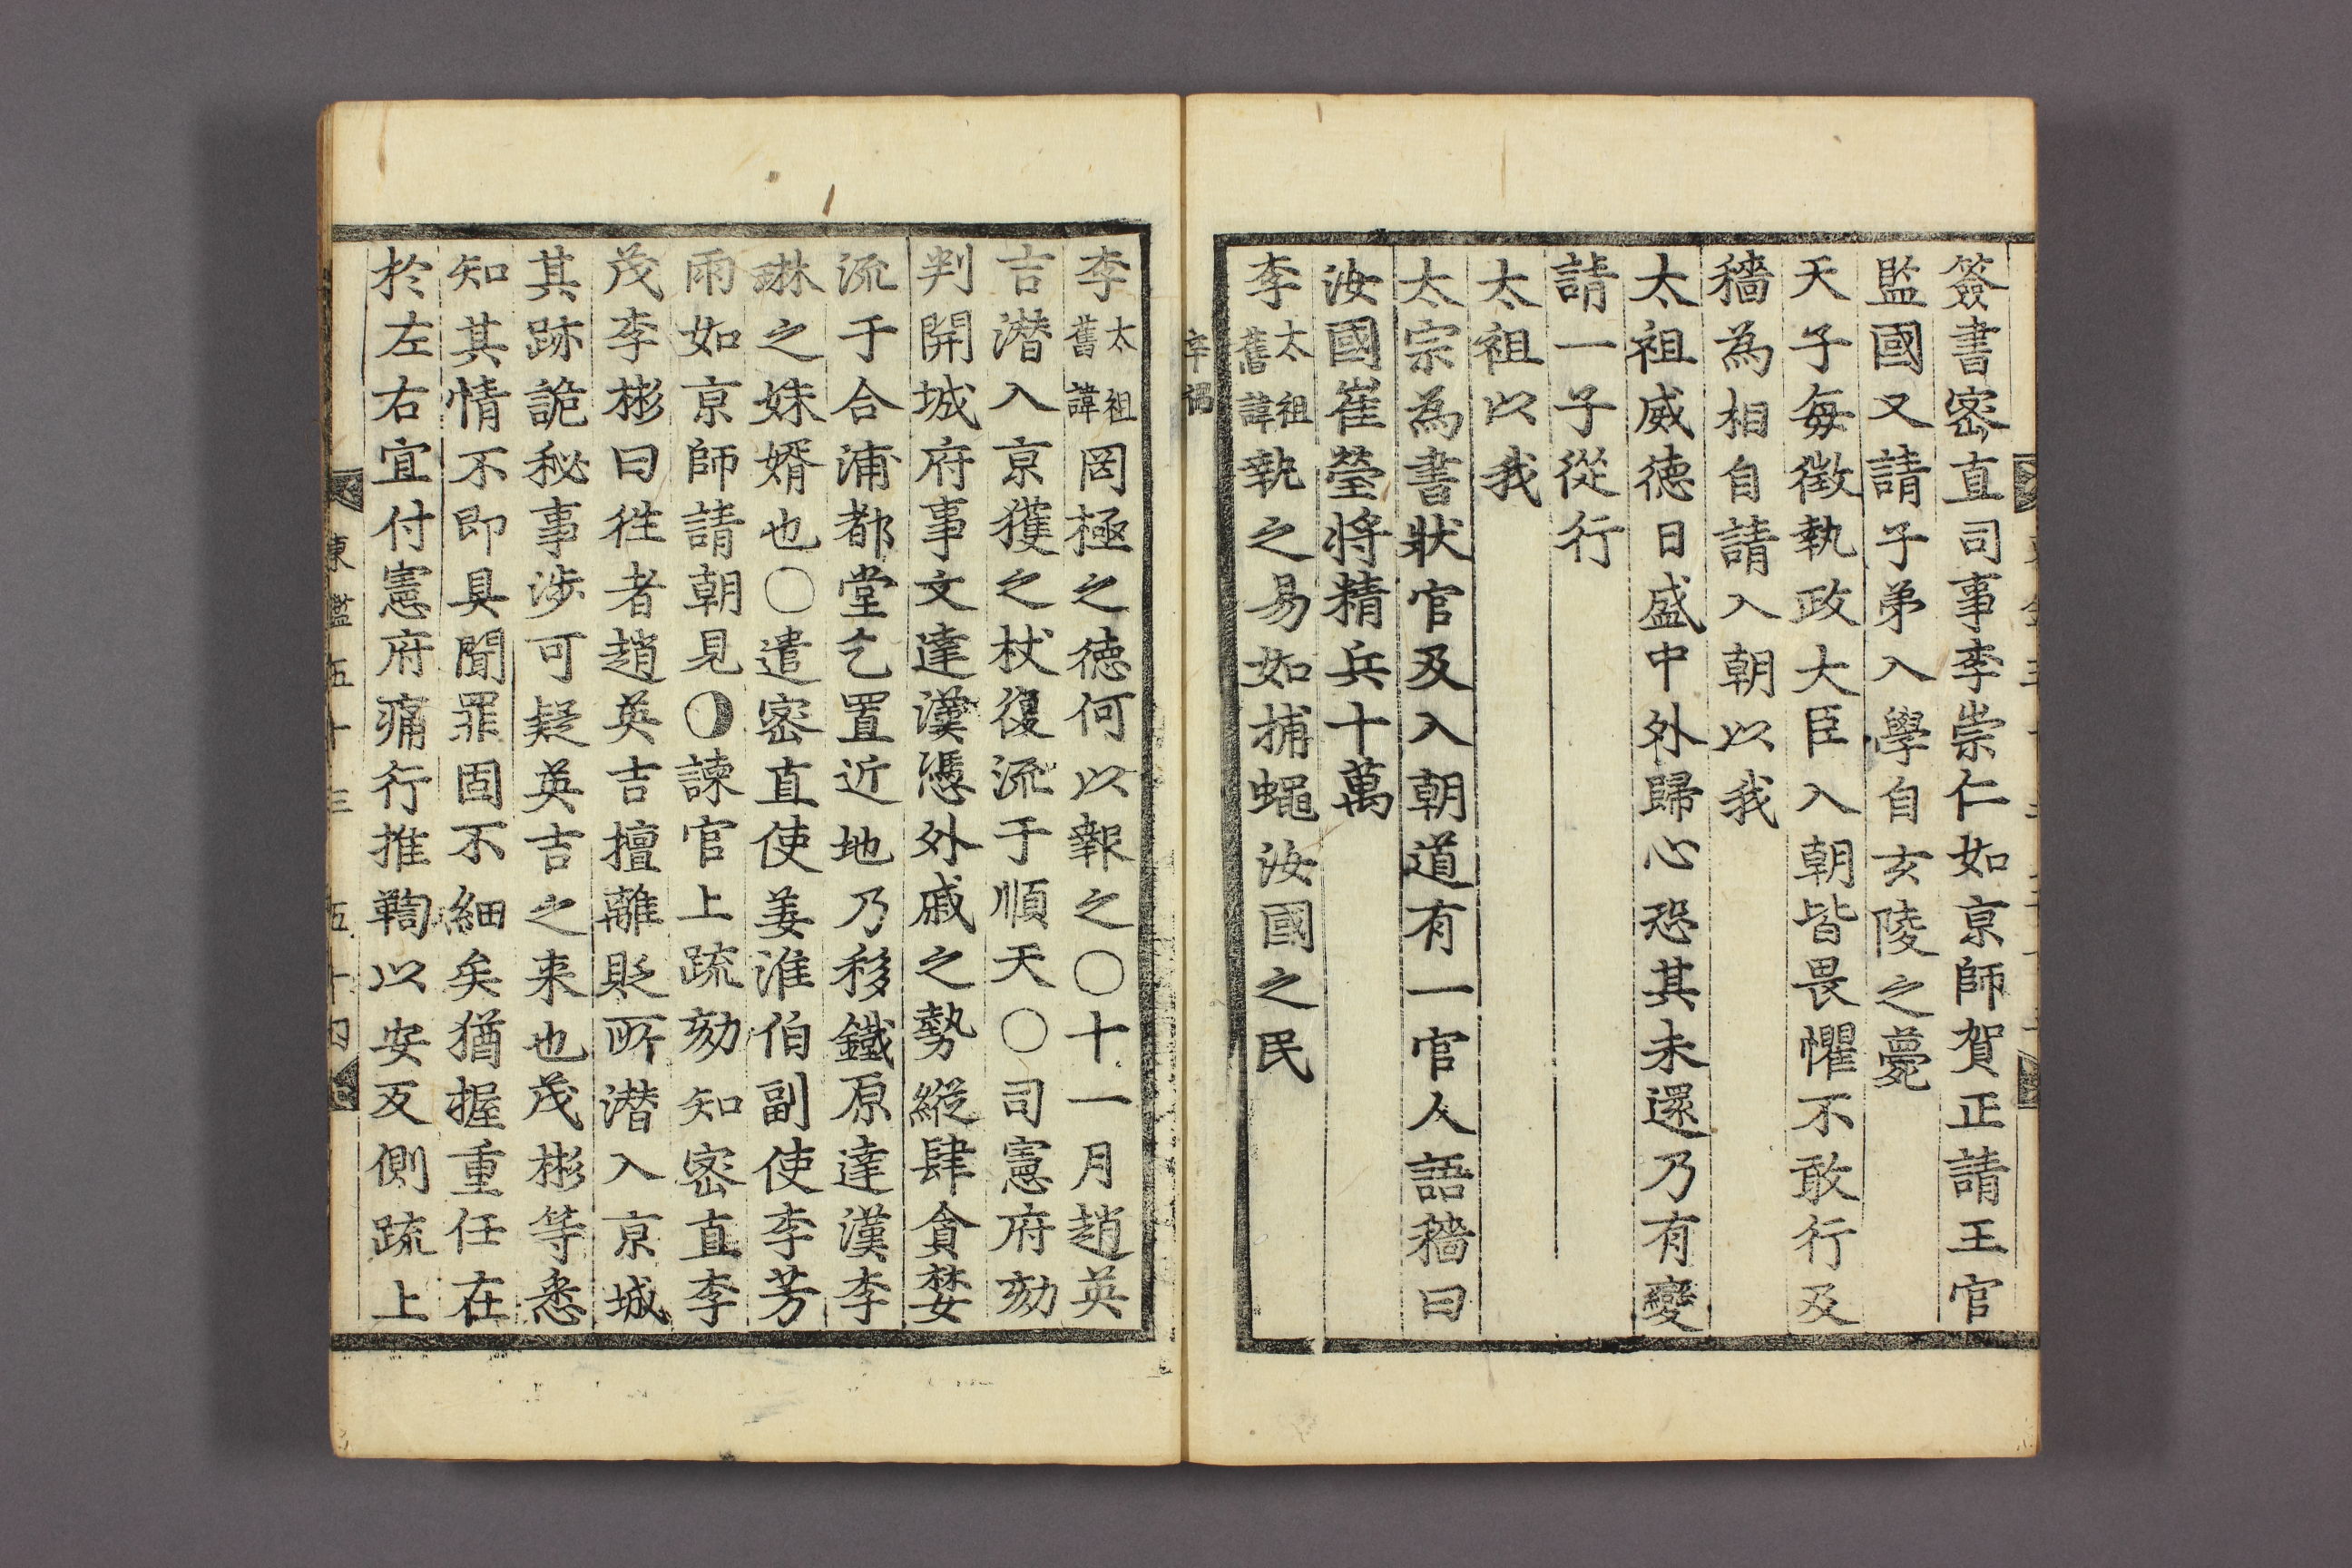 簽書密直司事李崇仁如京師賀正請王官
監國又請子弟入學自玄陵之薨
天子每徵執政大臣入朝皆畏懼不敢行及
穡為相自請入朝以我
太祖威德日盛中外歸心恐其未還乃有變
請一子從行
太祖以我
太宗為書狀官及入朝道有一官人語穡曰
汝國崔瑩將精兵十萬
李太祖舊諱執之易如捕蠅汝國之民
辛禑
李太祖舊諱罔極之德何以報之〇十一月趙英
吉潜入京獲之杖復流于順天〇司憲府劾
判開城府事文達漢憑外戚之勢縱肆貪婪
流于合浦都堂乞置近地乃移鐵原達漢李
琳之姝婿也〇遣密直使姜淮伯副使李芳
雨如京師請朝見〇諫官上疏劾知密直李
茂李彬曰徃者趙英吉擅離貶所潜入京城
其跡詭秘事涉可疑英吉之来也茂彬等悉
知其情不即具聞罪固不細矣猶握重任在
於左右宜付憲府痛行推鞫以安反側疏上
東鑑五十三 五十四